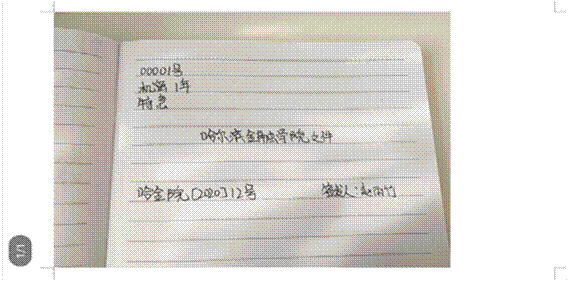 00001号
机密 1年
特急
哈尔滨金融学院文件
哈金院〔2020〕12号 签发人:赵雨竹